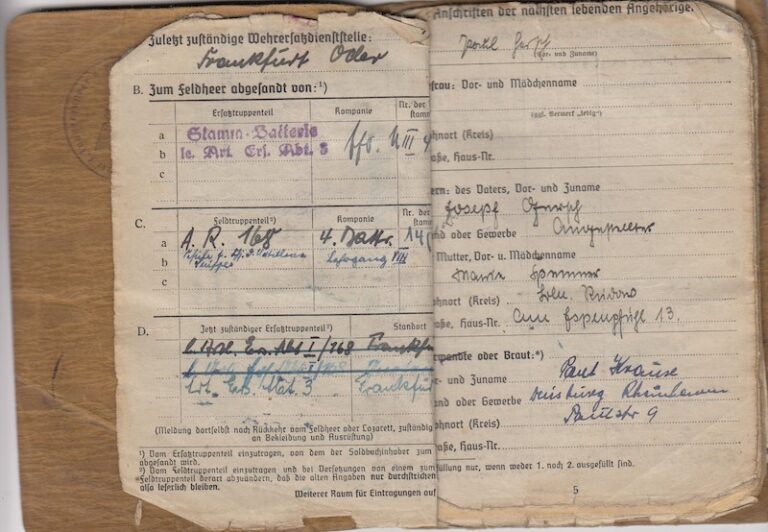 Zuletzt zuständige Wehrersatzdienststelle:
Frankfurt Oder
B. Zum Feldheer abgesandt von:¹)
Ersatztruppenteil Kompanie Nr. der
Stamm
a Stamm-Batterie
b le. Art. Ers. Abt. 3
c
C. Feldtruppenteil²) Kompanie Nr. der
Stamm
a A. R. 168 4. Battr. 14
b
c
D. Jetzt zuständiger Ersatztruppenteil²) Standort
I/168 Frankfur
Frankfur
(Meldung dortselbst nach Rückkehr vom Feldheer oder Lazarett, zuständig
an Bekleidung und Ausrüstung)
¹) Vom Ersatztruppenteil einzutragen, von dem der Soldbuchinhaber zum
abgesandt wird.
²) Vom Feldtruppenteil einzutragen und bei Versetzungen von einem zum
Feldtruppenteil derart abzuändern, daß die alten Angaben nur durchstrichen
also leserlich bleiben.
Weiterer Raum für Eintragungen auf
Anschriften der nächsten lebenden Angehörige.
(Vor- und Zuname)
frau: Vor- und Mädchenname
(ggf. Vermerk „ledig")
ohnort (Kreis)
aße, Haus-Nr.
ern: des Vaters, Vor- und Zuname
Josepf
nd oder Gewerbe Angestellter
Mutter, Vor- u. Mädchenname
Maria
ohnort (Kreis) Bln. Rudow
aße, Haus-Nr. Am Espenpfuhl 13.
erwandte oder Braut:*)
r- und Zuname Paul Krause
and oder Gewerbe Duisburg Rheinhausen
ohnort (Kreis) Paulstr 9
aße, Haus-Nr.
füllung nur, wenn weder 1. noch 2. ausgefüllt sind.
5